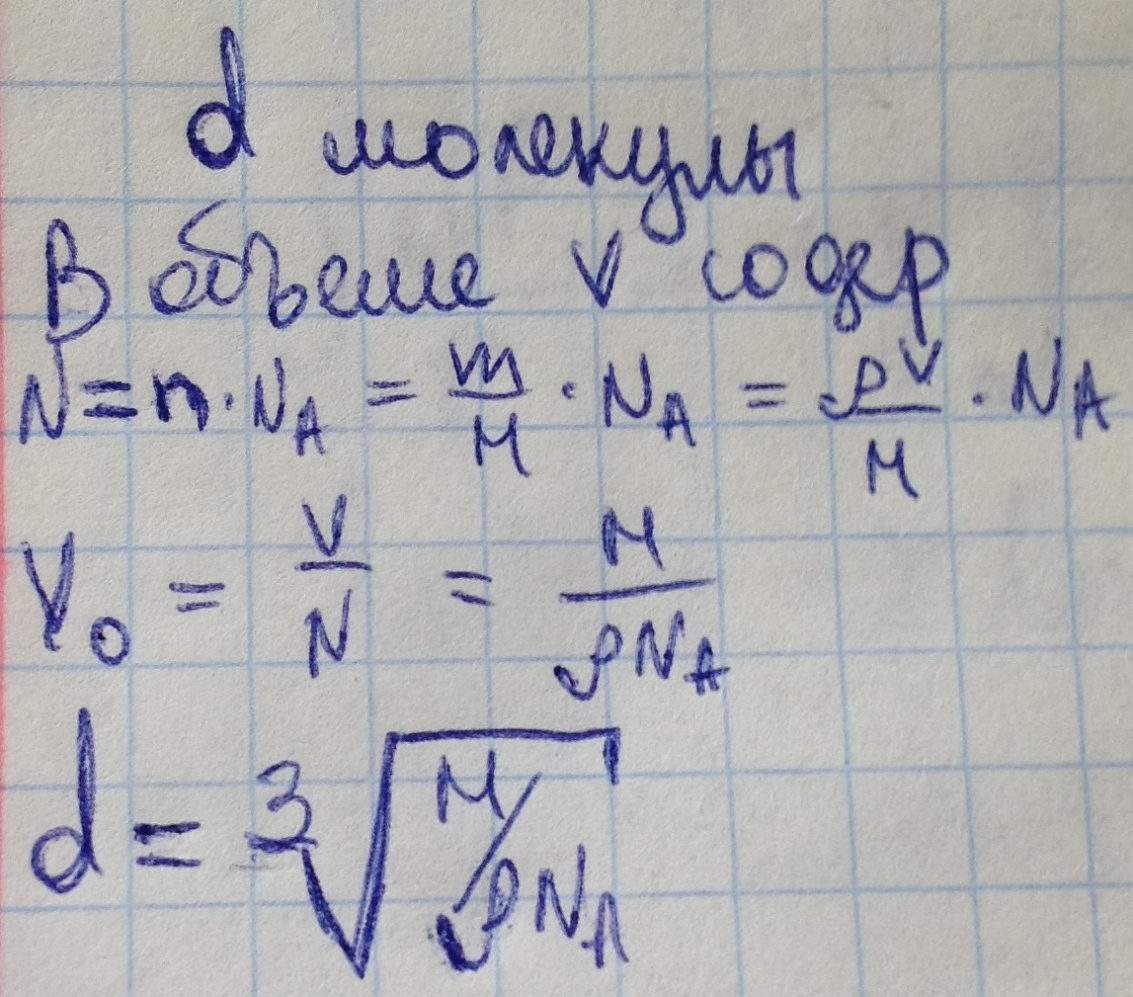 d молекулы
В объеме V содер
N = n · N_A = m/M · N_A = ρV/M · N_A
V₀ = V/N = M/ρN_A
d = ³√(M/ρN_A)